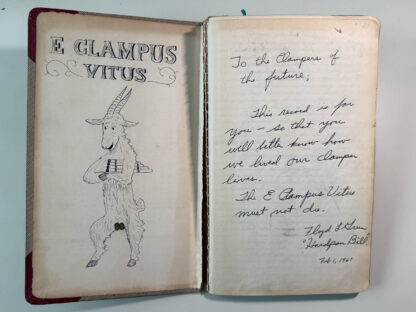 E CLAMPUS
VITUS
To the Clampers of
the future;
This record is for
you – so that you
will better know how
we lived our clamper
lives.
The E Clampus Vitus
must not die.
Floyd
"Hardpan Bill"
Feb 1, 1961